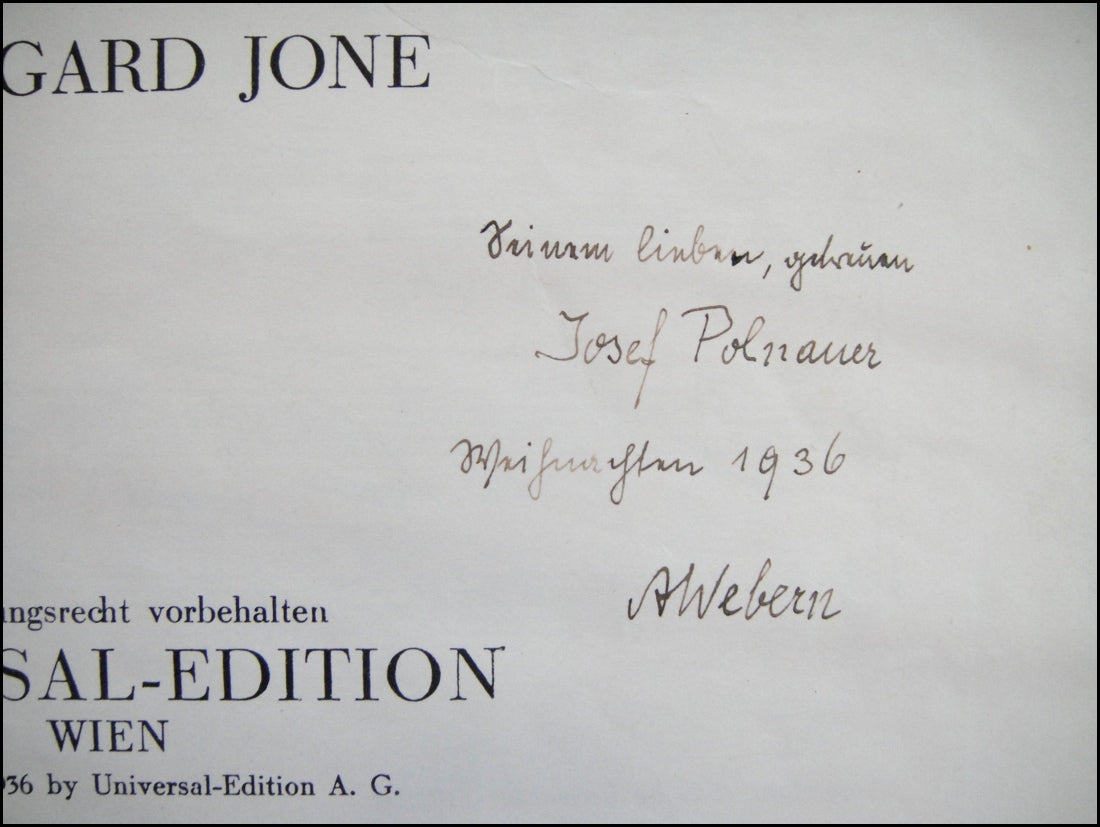 GARD JONE
Seinem lieben, getreuen
Josef Polnauer
Weihnachten 1936
AWebern
ngsrecht vorbehalten
SAL-EDITION
WIEN
36 by Universal-Edition A. G.